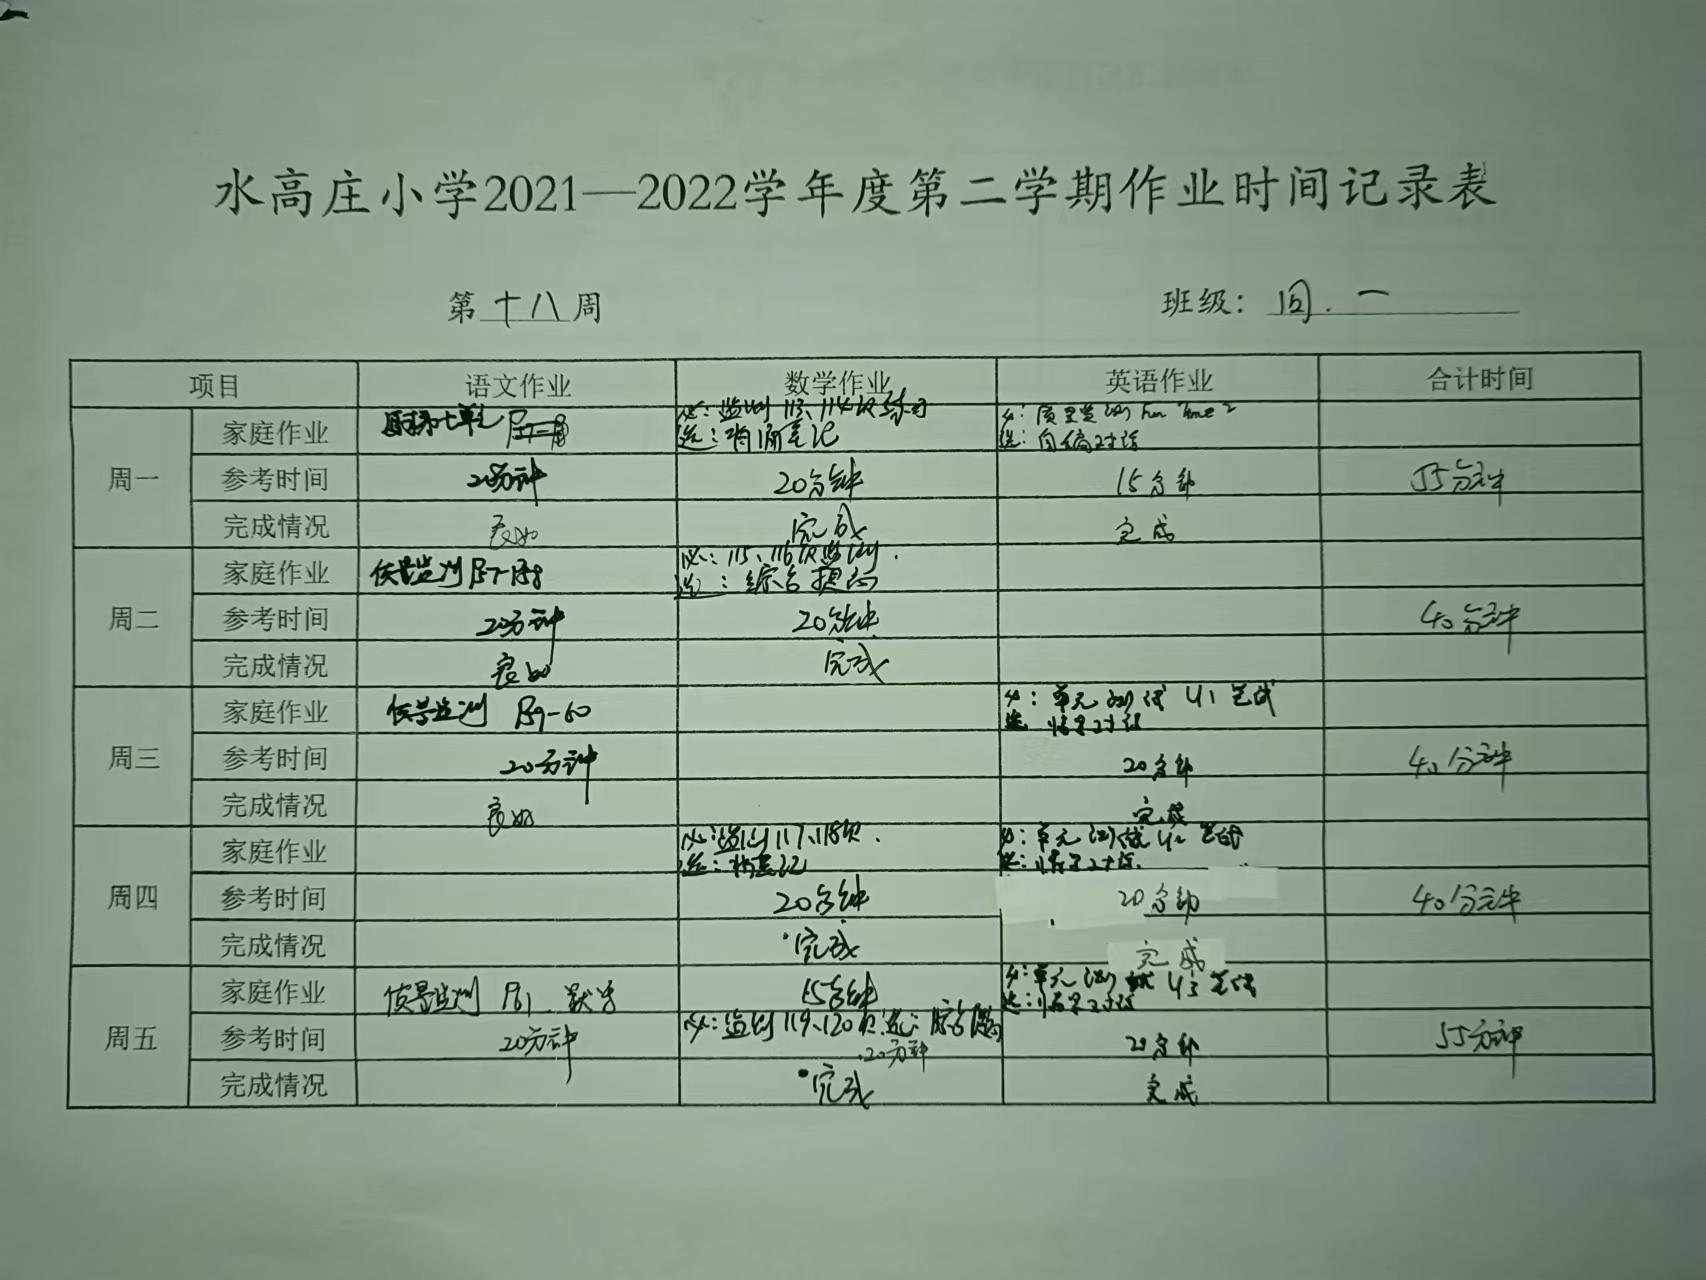 水高庄小学2021—2022学年度第二学期作业时间记录表
第十八周 班级：四.一
项目 语文作业 数学作业 英语作业 合计时间
周一
家庭作业
必：监测113、114页练习
选：
必：质量监测 fun time 2
选：自编对话
参考时间 20分钟 20分钟 15分钟 55分钟
完成情况 良好 完成 完成
周二
家庭作业 质量监测P57-P58
必：115、116页监测.
选：综合提高
参考时间 20分钟 20分钟 40分钟
完成情况 良好 完成
周三
家庭作业 质量监测 P59-60
必：单元测试 U1 笔试
选 情景对话
参考时间 20分钟 20分钟 40分钟
完成情况 良好 完成
周四
家庭作业
必：监测117、118页.
选：
必：单元测试 U2 笔试
选：情景对话.
参考时间 20分钟 20分钟 40分钟
完成情况 完成 完成
周五
家庭作业 质量监测 P61. 15分钟
必：单元测试 U3 笔试
选：情景对话
参考时间 20分钟
必：监测119、120页 选：
20分钟
20分钟 55分钟
完成情况 完成 完成